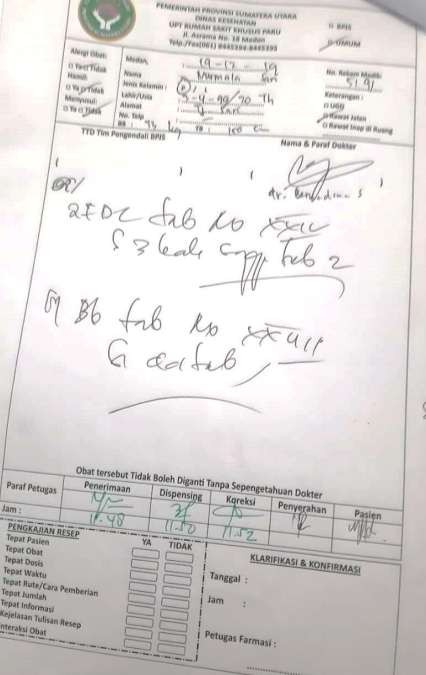 PEMERINTAH PROVINSI SUMATERA UTARA
DINAS KESEHATAN
UPT RUMAH SAKIT KHUSUS PARU
Jl. Asrama No. 18 Medan
Telp./Fax(061) 8445394-8445395
BPJS
UMUM
Alergi Obat:
Ya Tidak
Hamil:
Ya Tidak
Menyusui:
Ya Tidak
Medan, 19-12-19
Nama : Nirmala Sari
Jenis Kelamin :
Lahir/Usia
Alamat
No. Telp
BB : kg TB : 150 c
No. Rekam Medik:
5191
Keterangan :
UGD
Rawat Jalan
Rawat Inap di Ruang
TTD Tim Pengendali BPJS
Nama & Paraf Dokter
( ) ( )
dr.
R/
tab No XXIV
S 3 kali tab 2
R/ B6 tab No
tab
Obat tersebut Tidak Boleh Diganti Tanpa Sepengetahuan Dokter
Paraf Petugas Penerimaan Dispensing Koreksi Penyerahan Pasien
Jam : 11.48 11.50 11.52
PENGKAJIAN RESEP YA TIDAK
Tepat Pasien
Tepat Obat
Tepat Dosis
Tepat Waktu
Tepat Rute/Cara Pemberian
Tepat Jumlah
Tepat Informasi
Kejelasan Tulisan Resep
Interaksi Obat
KLARIFIKASI & KONFIRMASI
Tanggal :
Jam :
Petugas Farmasi :